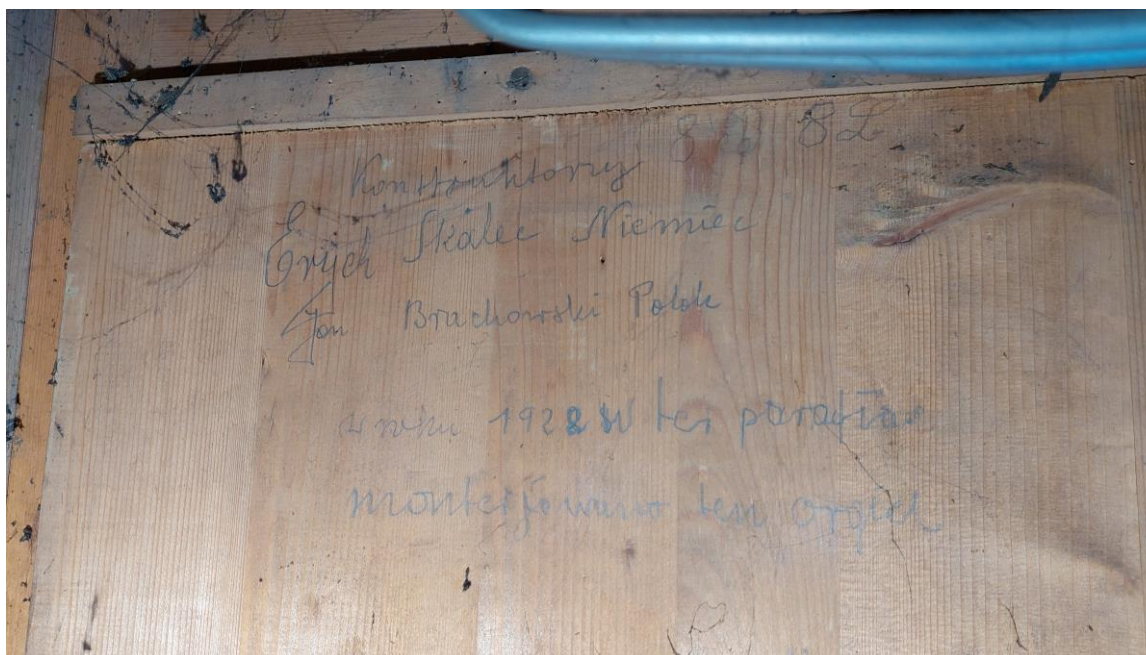 Konstruktorzy 8 L
Erych Skalec Niemiec
Jon Brachowski Polok
w roku 1928 W tej parafian
monterjowano ten orgiel